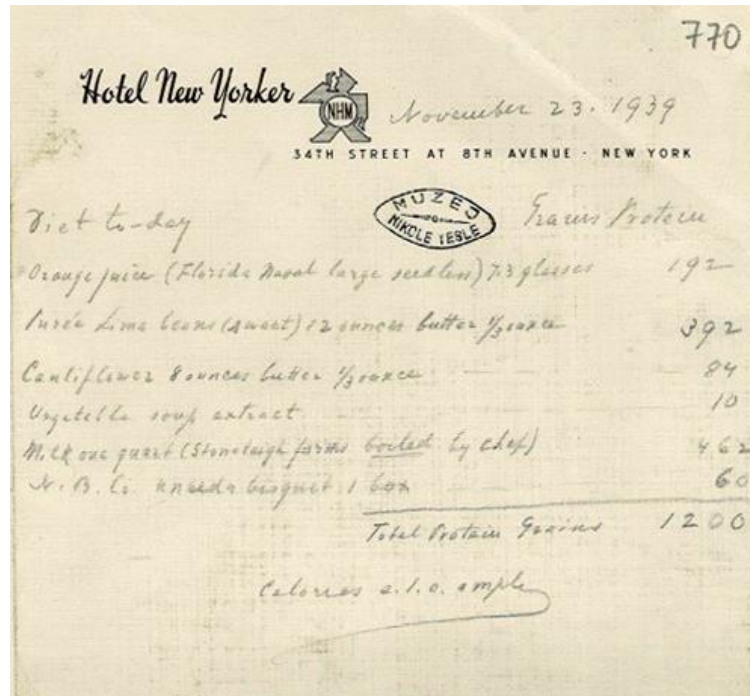 770
Hotel New Yorker
NHM
November 23. 1939
34TH STREET AT 8TH AVENUE · NEW YORK
MUZEJ
NIKOLE TESLE
Diet to-day Grains Protein
Orange juice (Florida Naval large seedless) 7.3 glasses 192
Purée Lima beans (sweet) 12 ounces butter 1/3 ounce 392
Cauliflower 8 ounces butter 1/3 ounce 84
Vegetable soup extract 10
Milk one quart (Stoneleigh farms boiled by chef) 462
N. B. Co. uneeda bisquit 1 box 60
Total Protein Grains 1200
Calories ample